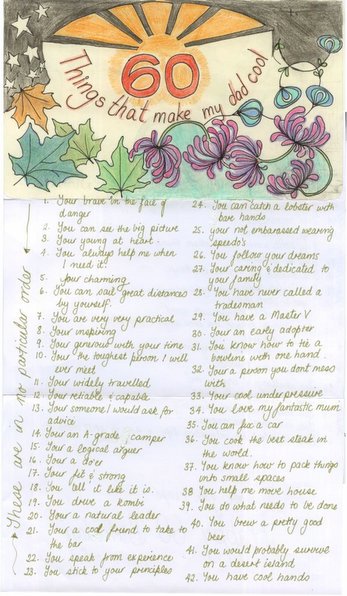 60
Things that make my dad cool
These are in no particular order
1. Your brave in the face of
danger
2. You can see the big picture
3. Your young at heart.
4. You always help me when
I need it!
5. your charming
6. You can sail great distances
by yourself.
7. You are very very practical
8. Your inspiring
9. Your generous with your time
10. Your the toughest person I will
ever meet
11. Your widely travelled
12. Your reliable & capable
13. Your someone I would ask for
advice
14. Your an A-grade camper
15. Your a logical arguer
16. Your a do'er
17. Your fit & strong
18. You tell it like it is.
19. You drive a kombi
20. Your a natural leader
21. Your a cool friend to take to
the bar
22. You speak from experience
23. You stick to your principles
24. You can catch a lobster with
bare hands
25. your not embarassed wearing
speedo's
26. You follow your dreams
27. Your caring & dedicated to
your family
28. You have never called a
tradesman
29. You have a Master V
30. Your an early adopter
31. You know how to tie a
bowline with one hand.
32. Your a person you dont mess
with
33. Your cool under pressure
34. You love my fantastic mum
35. You can fix a car
36. You cook the best steak in
the world.
37. You know how to pack things
into small spaces
38 You help me move house
39. You do what needs to be done
40. You brew a pretty good
beer
41. You would probably survive
on a desert island
42. You have cool hands